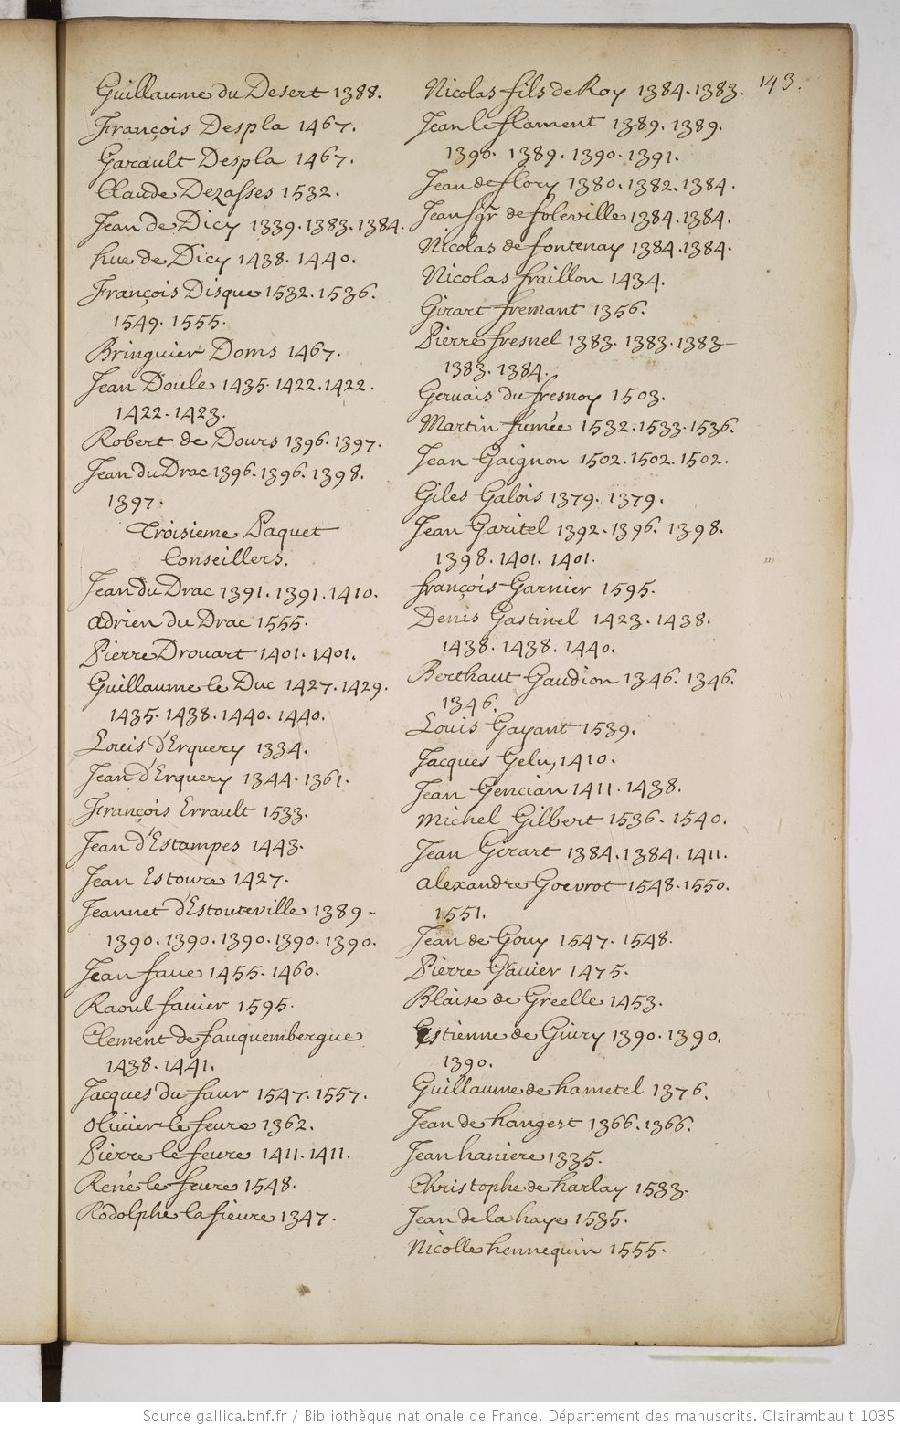 143.
Guillaume du Desert 1388.
François Despla 1467.
Garault Despla 1467.
Claude Dezasses 1532.
Jean de Dicy 1339. 1383. 1384.
hue de Dicy 1438. 1440.
François Disque 1532. 1536.
1549. 1555.
Bringuier Doms 1467.
Jean Doule 1435. 1422. 1422.
1422. 1423.
Robert de Dours 1396. 1397.
Jean du Drac 1396. 1396. 1398.
1397.
Troisieme Paquet
Conseillers.
Jean du Drac 1391. 1391. 1410.
adrien du Drac 1555.
Pierre Drouart 1401. 1401.
Guillaume le Duc 1427. 1429.
1435. 1438. 1440. 1440.
Louis d'Erquery 1334.
Jean d'Erquery 1344. 1361.
François Errault 1533.
Jean d'Estampes 1443.
Jean Estoure 1427.
Jeannet d'Estouteville 1389-
1390. 1390. 1390. 1390. 1390.
Jean faue 1455. 1460.
Raoul fauier 1595.
Clement de fauquembergue
1438. 1441.
Jacques du faur 1547. 1557.
oliuier le feure 1362.
Pierre le feure 1411. 1411.
René le feure 1548.
Rodolphe la fieure 1347.
Nicolas fils de Roy 1384. 1383.
Jean le flament 1389. 1389.
1390. 1389. 1390. 1391.
Jean de flory 1380. 1382. 1384.
Jean sgr de foleville 1384. 1384.
Nicolas de fontenay 1384. 1384.
Nicolas fraillon 1434.
Girart fremant 1356.
Pierre fresnel 1383. 1383. 1383-
1383. 1384.
Geruais du fresnoy 1503.
Martin fumée 1532. 1533. 1536.
Jean Gaignon 1502. 1502. 1502.
Giles Galois 1379. 1379.
Jean Garitel 1392. 1396. 1398.
1398. 1401. 1401.
françois Garnier 1595.
Denis Gastinel 1423. 1438.
1438. 1438. 1440.
Berthaut Gaudion 1346. 1346.
1346.
Louis Gayant 1539.
Jacques Gelu, 1410.
Jean Gencian 1411. 1438.
Michel Gilbert 1536. 1540.
Jean Girart 1384. 1384. 1411.
alexandre Goevrot 1548. 1550.
1551.
Jean de Gouy 1547. 1548.
Pierre 1475.
Blaise de Greelle 1453.
Estienne de Giury 1390. 1390.
1390.
Guillaume de hametel 1376.
Jean de hangest 1366. 1366.
Jean haniere 1335.
Christophe de harlay 1533.
Jean de la haye 1535.
Nicolle hennequin 1555.
Source gallica.bnf.fr / Bibliothèque nationale de France. Département des manuscrits. Clairambault 1035